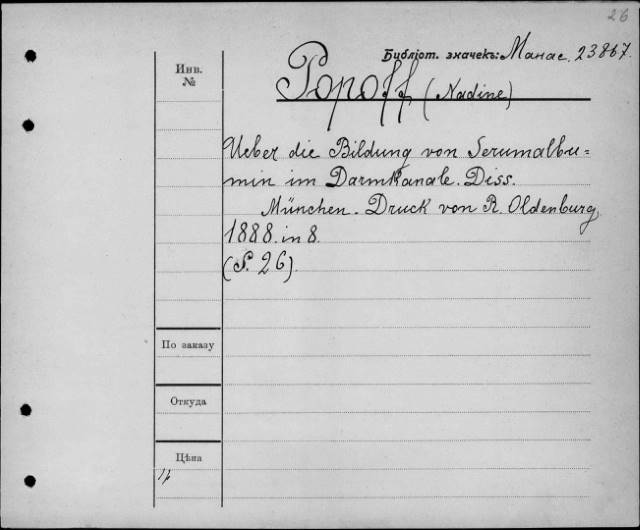 26
Библіот. значекъ: Манас. 23867.
Инв.
№
Popoff (Nadine)
Ueber die Bildung von Serumalbu=
min im Darmkanale. Diss.
München. Druck von R. Oldenburg,
1888. in 8.
(S. 26).
По заказу
Откуда
Цѣна